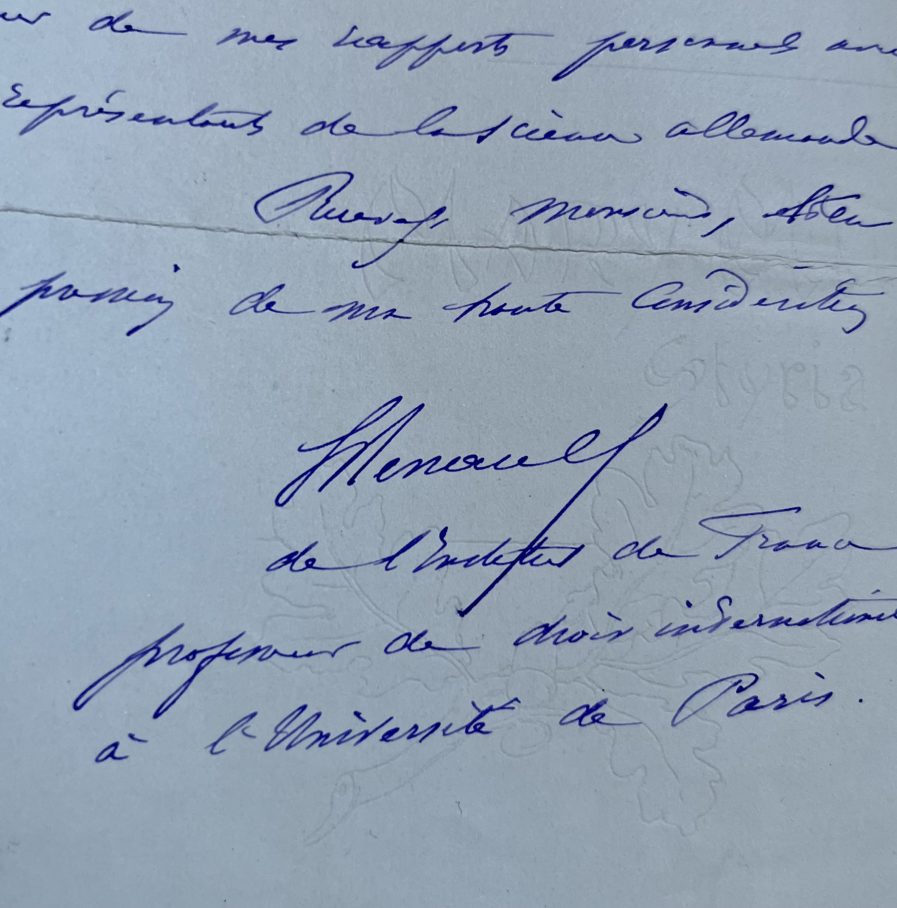 de mes rapports personnels avec
représentants de la science allemande
Recevez, Monsieur,
de ma haute considération
LRenault
de l'Institut de France
professeur de droit international
à l'Université de Paris.